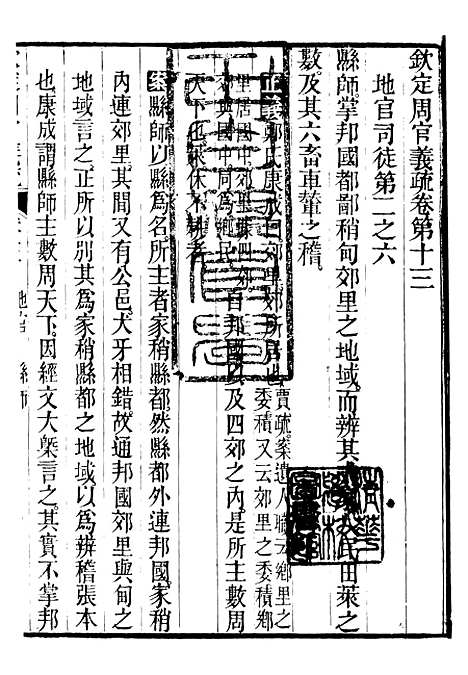 欽定周官義疏卷第十三
地官司徒第二之六
縣師掌邦國都鄙稍甸郊里之地域而辨其夫家人民田萊之
數及其六畜車輦之稽
正義鄭氏康成曰郊里郊所居也賈疏案遺人職云鄉里之委積又云郊里之委積鄉
里居國中郊里四郊與國中同為鄉民自邦國以及四郊之內是所主數周
天下也萊休不耕者
案縣師以縣為名所主者家稍縣都然縣都外連邦國家稍
內連郊里其間又有公邑犬牙相錯故通邦國郊里與甸之
地域言之正所以別其為家稍縣都之地域以為辨稽張本
也康成謂縣師主數周天下因經文大槩言之其實不掌邦
地官 縣師